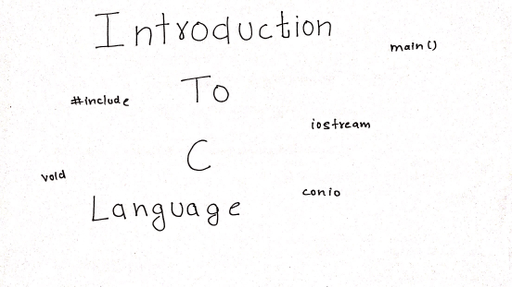 Introduction
main()
To
#include
iostream
C
void
conio
Language